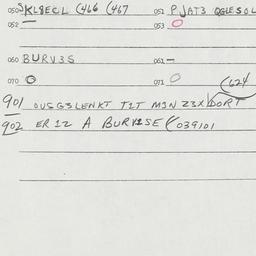 050 SKLBECL (466 (467 051 P JAT3 OGLESOL
052 — 053 O
060 BURV3S 061 —
070 O 071 O
(624
901 OUSG3LENKT T2T M3N Z3X WORT
902 ER 12 A BURV2SE (039101